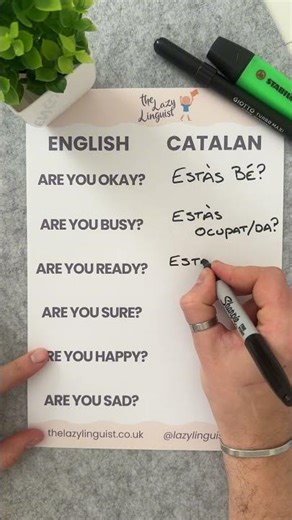 the
Lazy
Linguist
STABILO
GIOTTO TURBO MAXI
ENGLISH CATALAN
ARE YOU OKAY? ESTÀS BÉ?
ARE YOU BUSY? ESTÀS
OCUPAT/DA?
ARE YOU READY? EST
ARE YOU SURE?
ARE YOU HAPPY?
ARE YOU SAD?
Sharpie
thelazylinguist.co.uk @lazylinguist